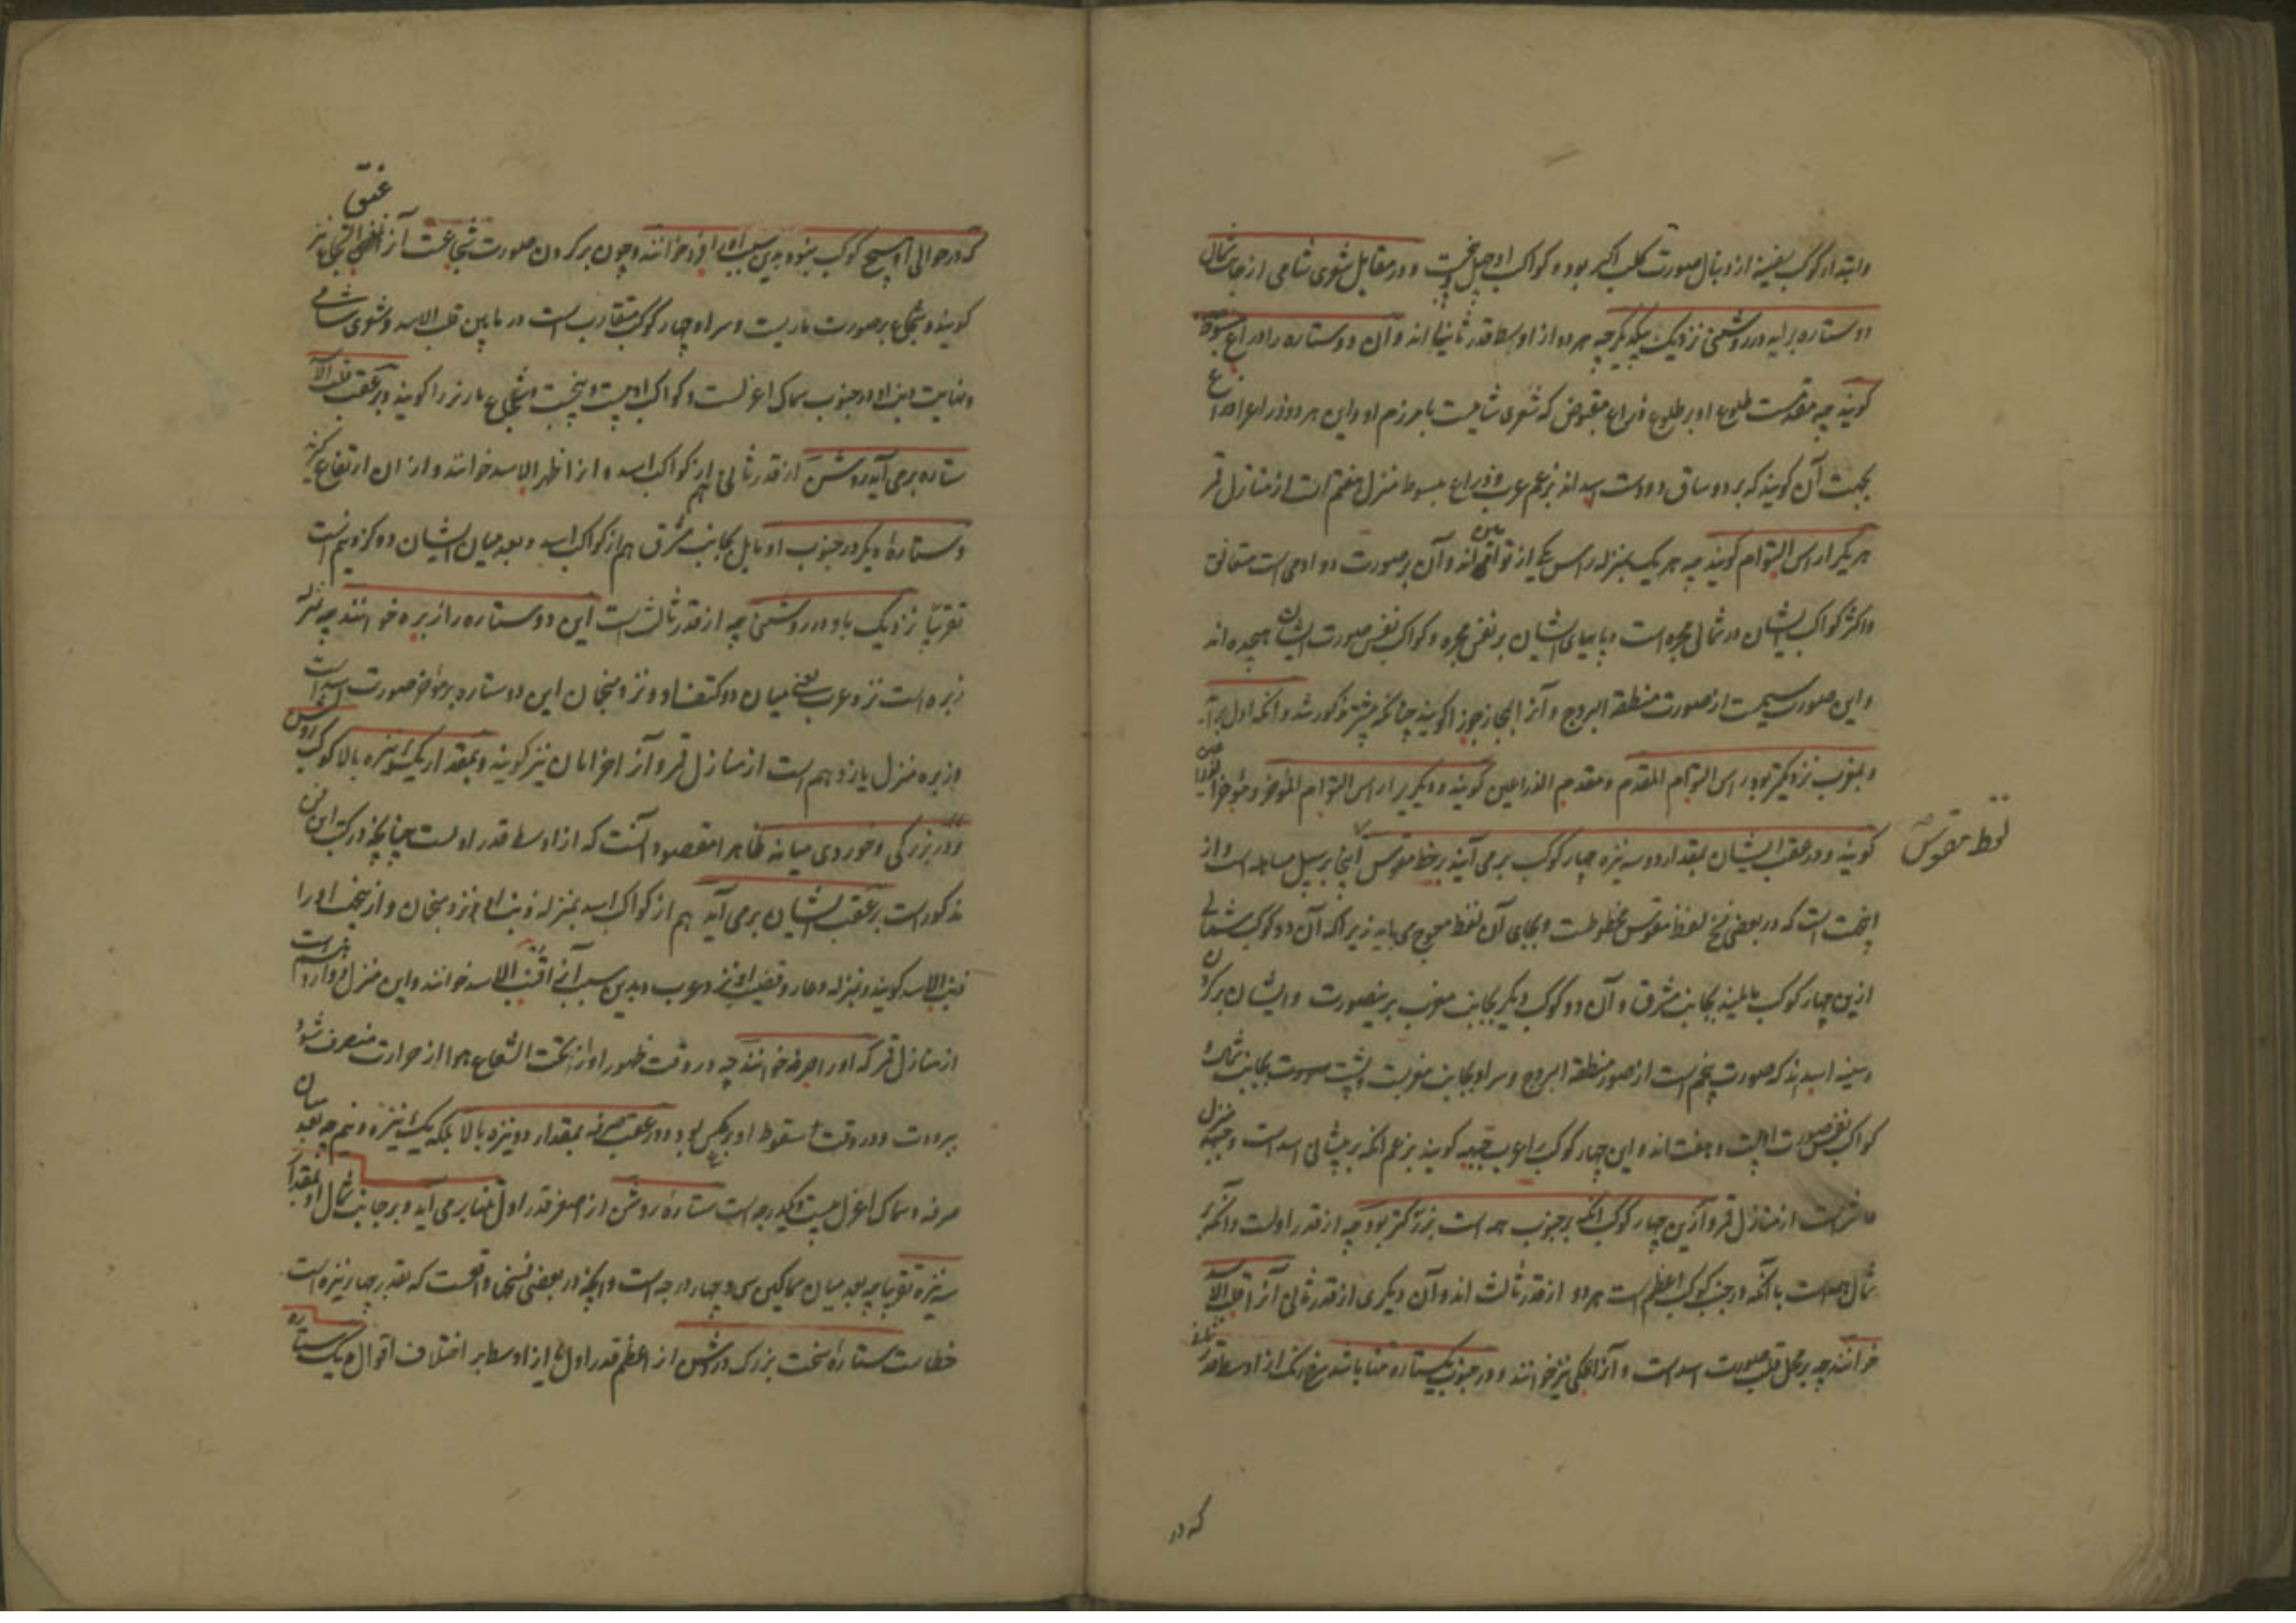 وابتدا از کوکب سفینه از دنبال صورت کلب اکبر بود و کواکب او چهل و پنجست و در مقابل شعری شامی از جانب شمال
دو ستاره برآید در روشنی نزدیک بیکدیگر چه هر دو از اوسط قدر ثانی اند و آن دو ستاره را ذراع مبسوطه
گویند چه مقدمست طلوع او بر طلوع ذراع مقبوض که شعری شامیست با مرزم او و این هر دو ذراع را ذراع
بجهت آن گویند که بر دو ساق دو دست اسد اند بزعم عرب و ذراع مبسوطه منزل هفتم است از منازل قمر
هر یکی را راس التوام گویند چه هر یک بمنزله راس یکی از توامین اند و آن بر صورت دو آدمی است متعانق
و اکثر کواکب ایشان در شمالی مجره است و پایهای ایشان بر نفس مجره و کواکب نفس صورت ایشان هیجده اند
و این صورت سیمست از صورت منطقة البروج و آنرا بمجاز جوزا گویند چنانکه پیشتر مذکور شد و آنکه اول برآید
و بمغرب نزدیکتر بود راس التوام المقدم و مقدم الذراعین گویند و دیگری را راس التوام المؤخر و مؤخر الذراعین
گویند و در عقب ایشان بمقدار دو سه نیزه چهار کوکب برمی آیند بر خط مقوس اینجا بر سبیل مساهله است و از
لفظ مقوس
اینجهت است که در بعضی نسخ لفظ مقوس مخطوطست و بجای آن لفظ معوج می باید زیرا که آن دو کوکب شمالی
ازین چهار کوکب مایلیند بجانب مشرق و آن دو کوکب دیگر بجانب مغرب برینصورت و ایشان بر گردن
و سینه اسد اند که صورت پنجم است از صور منطقة البروج و سر او بجانب مغربست و پشت بجانب شمال
کواکب نفس صورت او بیست و هفت اند و این چهار کوکب را عرب جبهه گویند بزعم آنکه بر پیشانی اسد است و جبهه منزل
عاشرست از منازل قمر و ازین چهار کوکب آنکه بجنوب همه است بزرگتر بود چه از قدر اولست و آنکه
شمال همه است با آنکه در جنب کوکب اعظم است هر دو از قدر ثالث اند و آن دیگری از قدر ثانی آنرا قلب الاسد
خوانند چه بر محل قلب صورت اسد است و آنرا ملکی نیز خوانند و در جنوب یک ستاره تنها باشد سرخ رنگ از اوسط قدر ثانی
که در
که در حوالی او هیچ کوکب نبود و بدین سبب او را فرد خوانند و چون بر گردن صورت شجاعست آنرا عنق الشجاع نیز
گویند و شجاع بر صورت ماریست و سر او چهار کوکب متقارب است در مابین قلب الاسد و شعری شامی
و نهایت ذنب او در جنوب سماک اعزلست و کواکب او بیست و پنجست و شجاع مار نر را گویند و بر عقب قلب الاسد
ستاره برمی آید روشن از قدر ثانی هم از کواکب اسد و آنرا ظهر الاسد خوانند و از آن ارتفاع گیرند
و ستاره دیگر در جنوب او مایل بجانب مشرق هم از کواکب اسد و بعد میان ایشان دو گز و نیم است
تقریبا نزدیک باو در روشنی چه از قدر ثالث است این دو ستاره را زبره خوانند چه منزله
زبره است نزد عرب یعنی میان دو کتف او و نزد منجمان این دو ستاره بر مؤخر صورت اسد است
و زبره منزل یازدهم است از منازل قمر و آنرا خراتان نیز گویند و بمقدار یک نیزه بالا کوکب روشن
و در بزرگی و خوردی میانه ظاهرا مقصود آنست که از اوسط قدر اولست چنانچه در کتب این فن
مذکور است بر عقب ایشان برمی آید هم از کواکب اسد بمنزله ذنب او نزد منجمان و ازینجهت او را
ذنب الاسد گویند و بمنزله وعاء قضیب او نزد عرب و بدین سبب آنرا قنب الاسد خوانند و این منزل دوازدهم است
از منازل قمر که او را صرفه خوانند چه در وقت ظهور او از تحت الشعاع هوا از حرارت منصرف شود
ببرودت و در وقت سقوط او بعکس بود و در عقب صرفه بمقدار دو نیزه بالا بلکه یک نیزه و نیم چه بعد میان
صرفه و سماک اعزل بیست و یکدرجه است ستاره روشن از اصغر قدر اول تنها برمی آید و بر جانب شمال او بمقدار
سه نیزه تقریبا چه بعد میان سماکین سی و چهار درجه است و آنچه در بعضی نسخ واقعست که بقدر چهار نیزه است
خطاست ستاره سخت بزرگ و روشن از اعظم قدر اول یا از اوسط بر اختلاف اقوال و یک ستاره